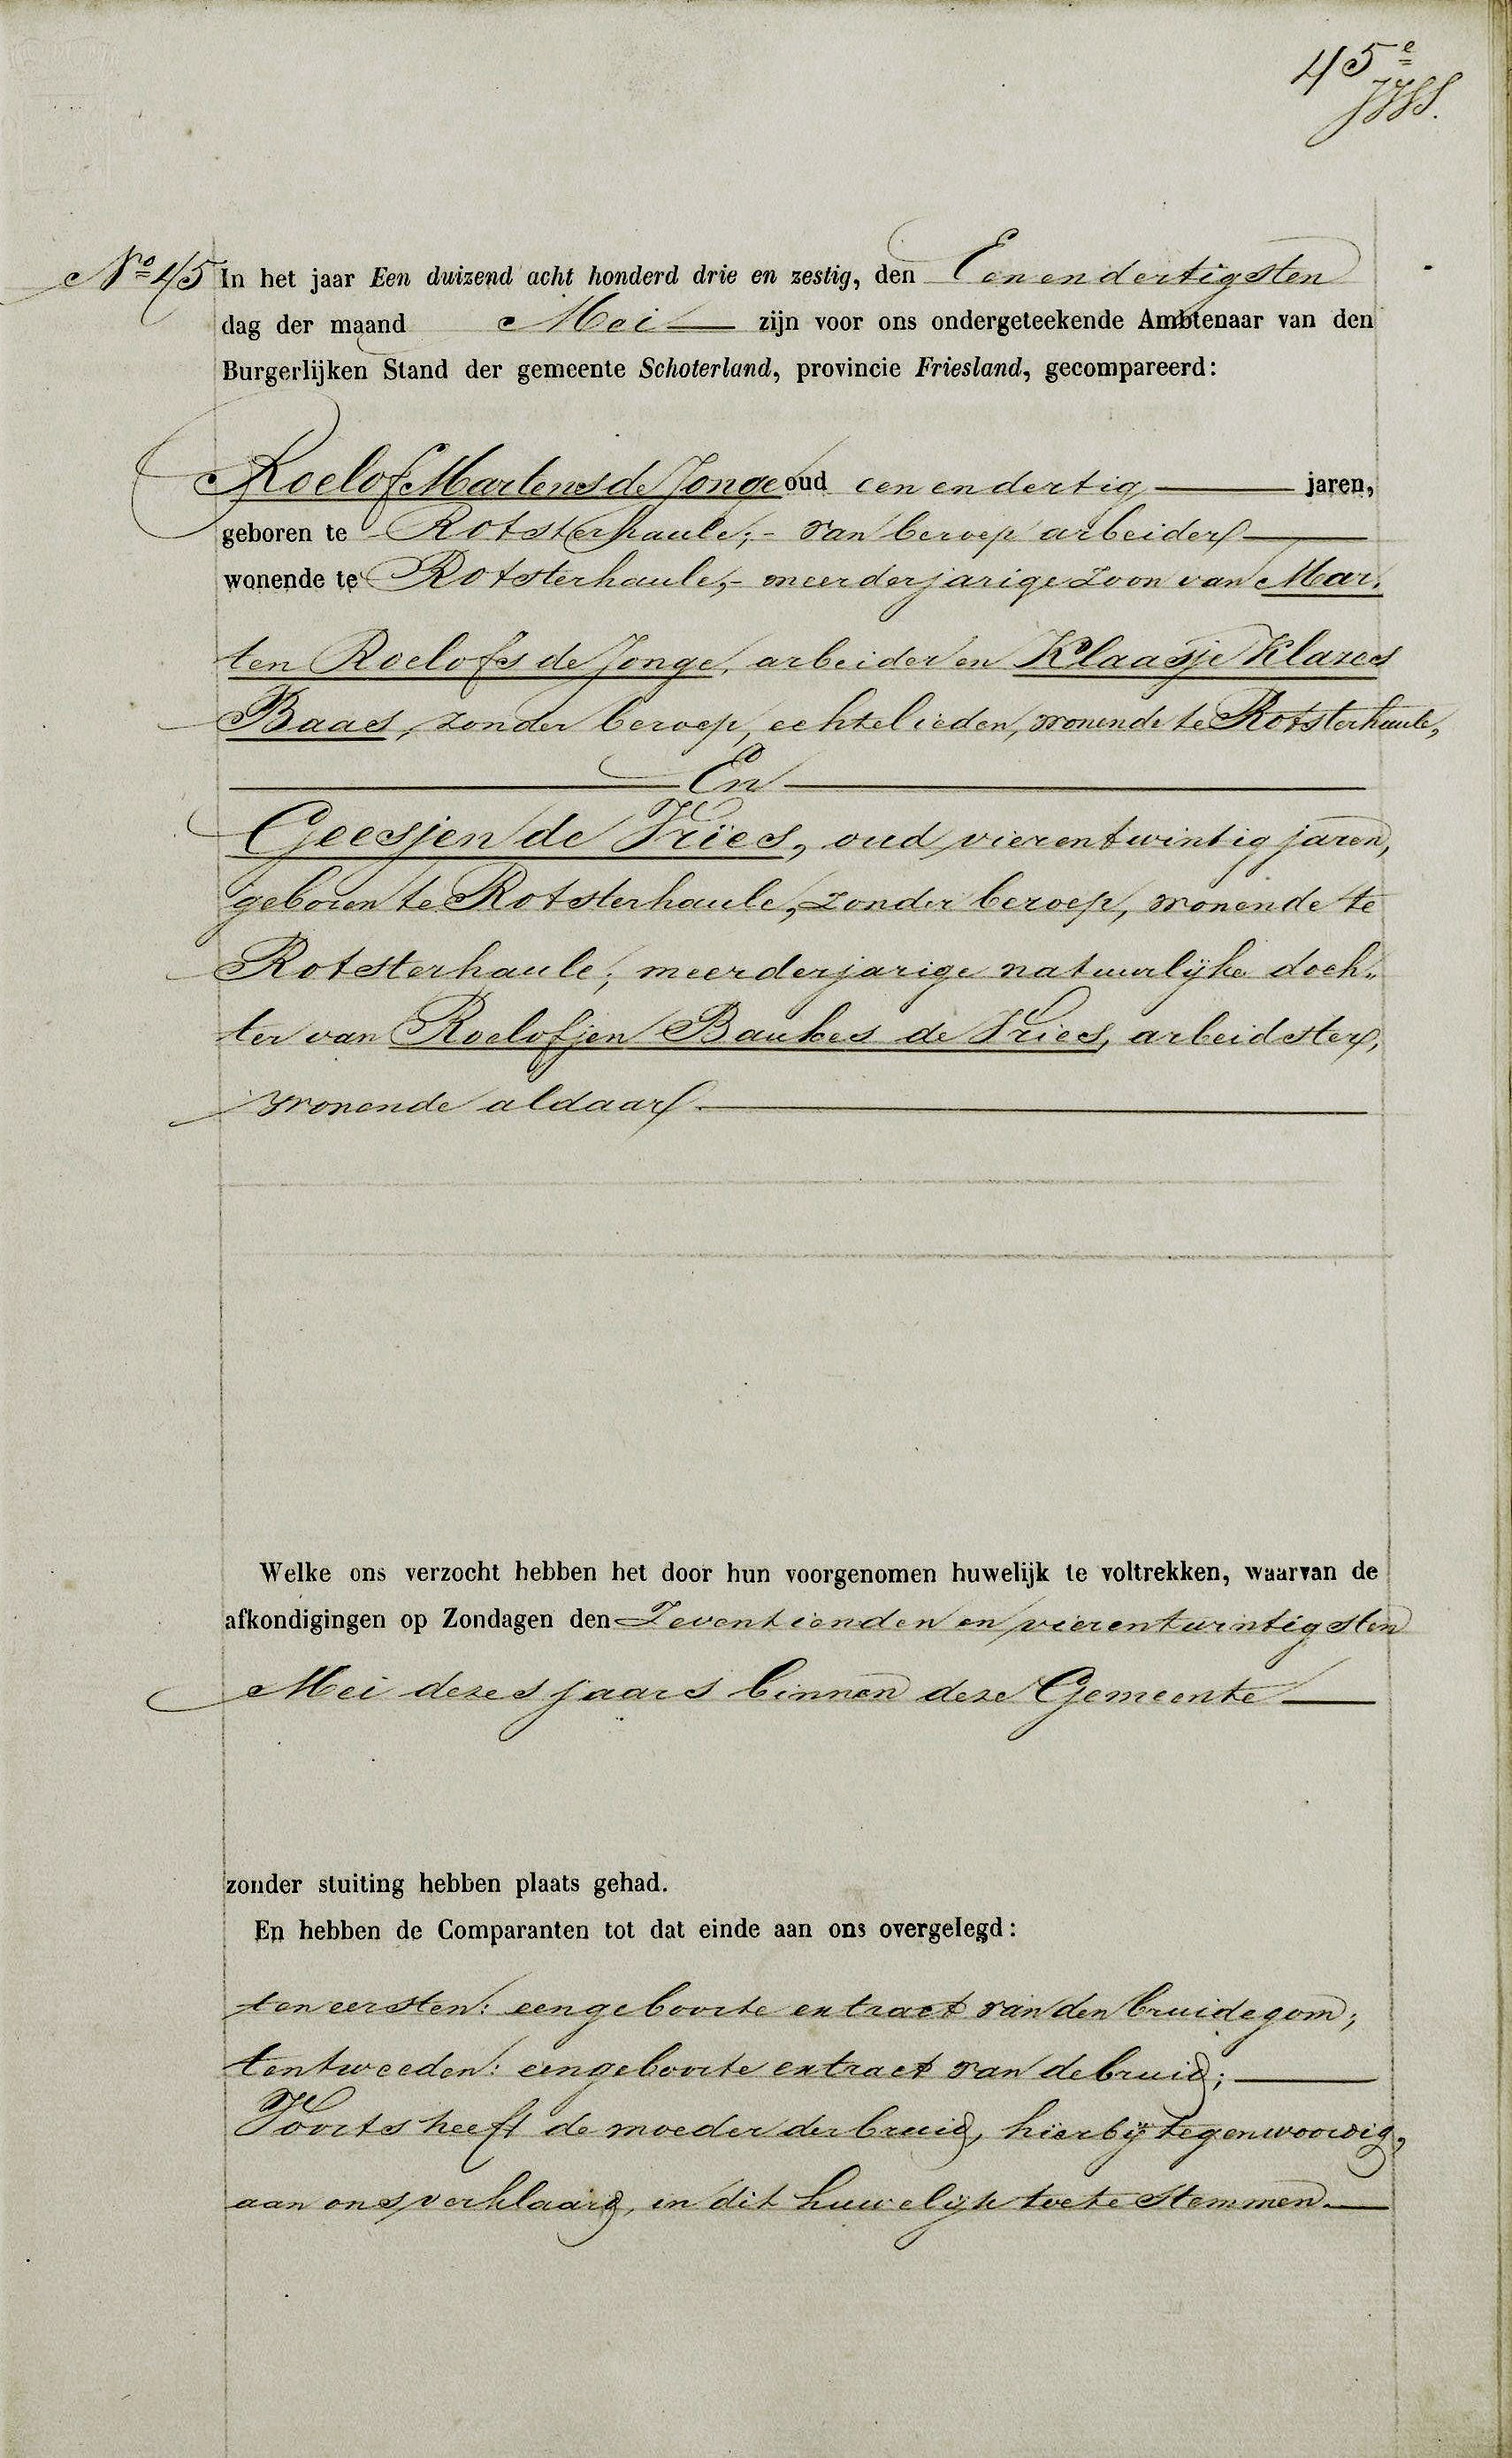 45e
No 45 In het jaar Een duizend acht honderd drie en zestig, den Eenendertigsten
dag der maand Mei zijn voor ons ondergeteekende Ambtenaar van den
Burgerlijken Stand der gemeente Schoterland, provincie Friesland, gecompareerd:
Roelof Martens de Jonge oud eenendertig jaren,
geboren te Rotsterhaule;- van beroep arbeider
wonende te Rotsterhaule,- meerderjarige zoon van Mar-
ten Roelofs de Jonge, arbeider en Klaasje Klazes
Baas, zonder beroep, echtelieden, wonende te Rotsterhaule,
En
Geesjen de Vries, oud vierentwintig jaren,
geboren te Rotsterhaule, zonder beroep, wonende te
Rotsterhaule; meerderjarige natuurlijke doch-
ter van Roelofjen Baukes de Vries, arbeidster,
wonende aldaar
Welke ons verzocht hebben het door hun voorgenomen huwelijk te voltrekken, waarvan de
afkondigingen op Zondagen den Zeventienden en vierentwintigsten
Mei dezes jaars binnen deze Gemeente
zonder stuiting hebben plaats gehad.
En hebben de Comparanten tot dat einde aan ons overgelegd:
ten eersten: een geboorte extract van den bruidegom;
ten tweeden: een geboorte extract van de bruid;
Voorts heeft de moeder der bruid, hierbij tegenwoordig,
aan ons verklaard, in dit huwelijk toe te stemmen